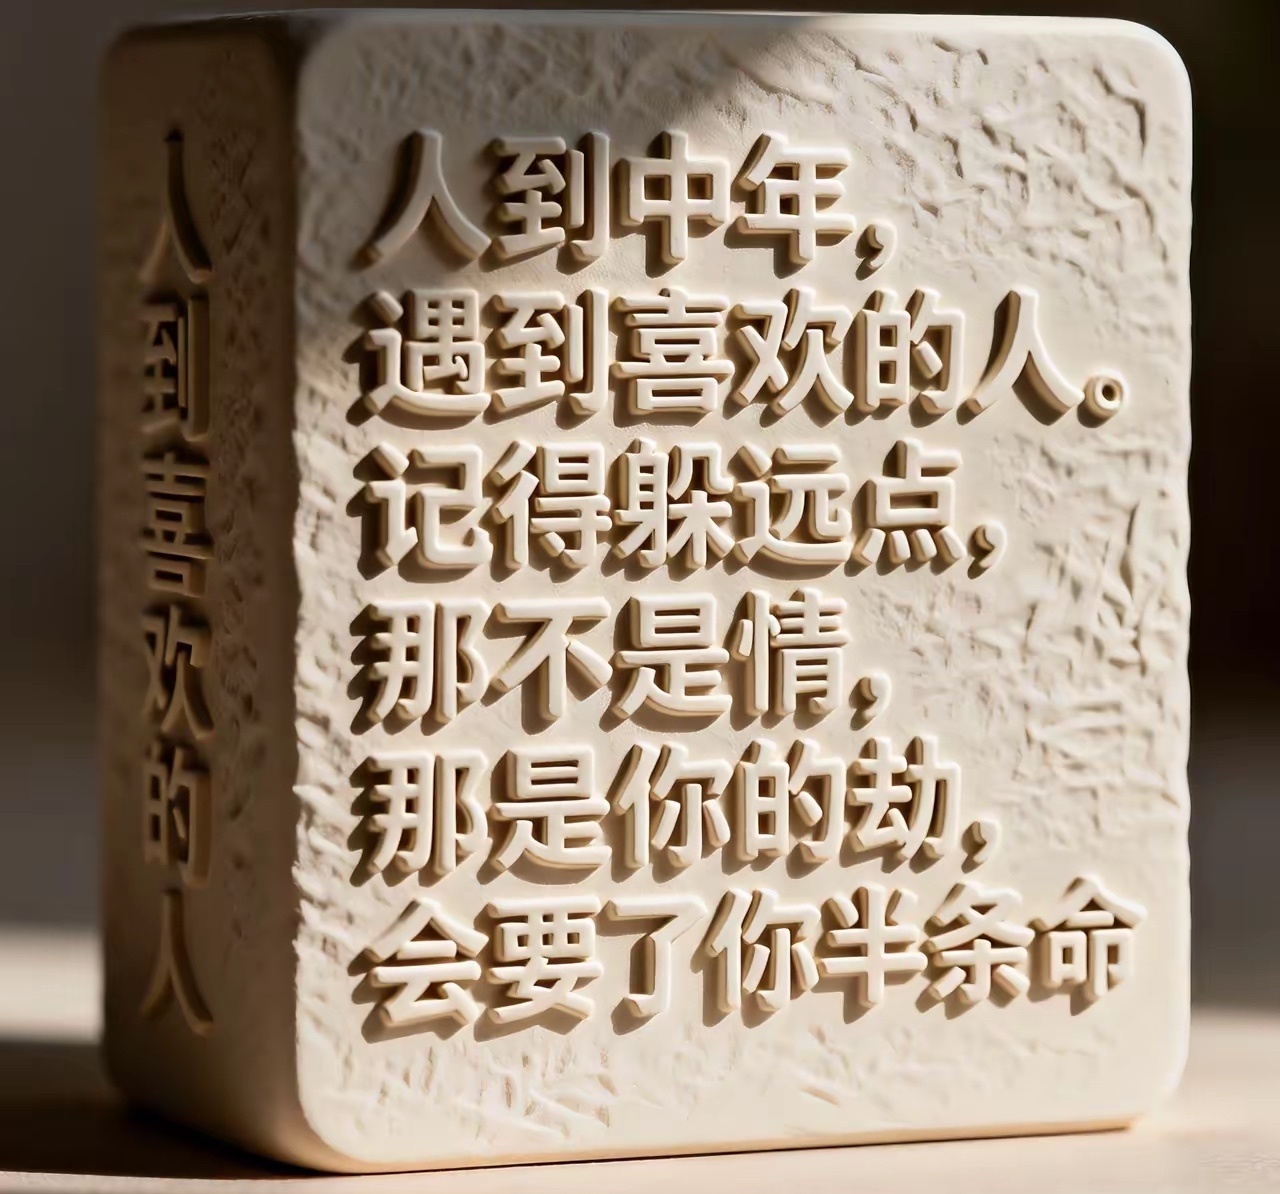 人到中年，
遇到喜欢的人。
记得躲远点，
那不是情，
那是你的劫，
会要了你半条命
人到喜欢的人